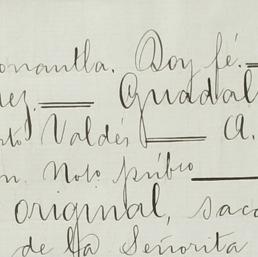 onantla. Doy fé.
ez. Guadal
to Valdés A.
n. Noto púbco
original, saca
de la Señorita